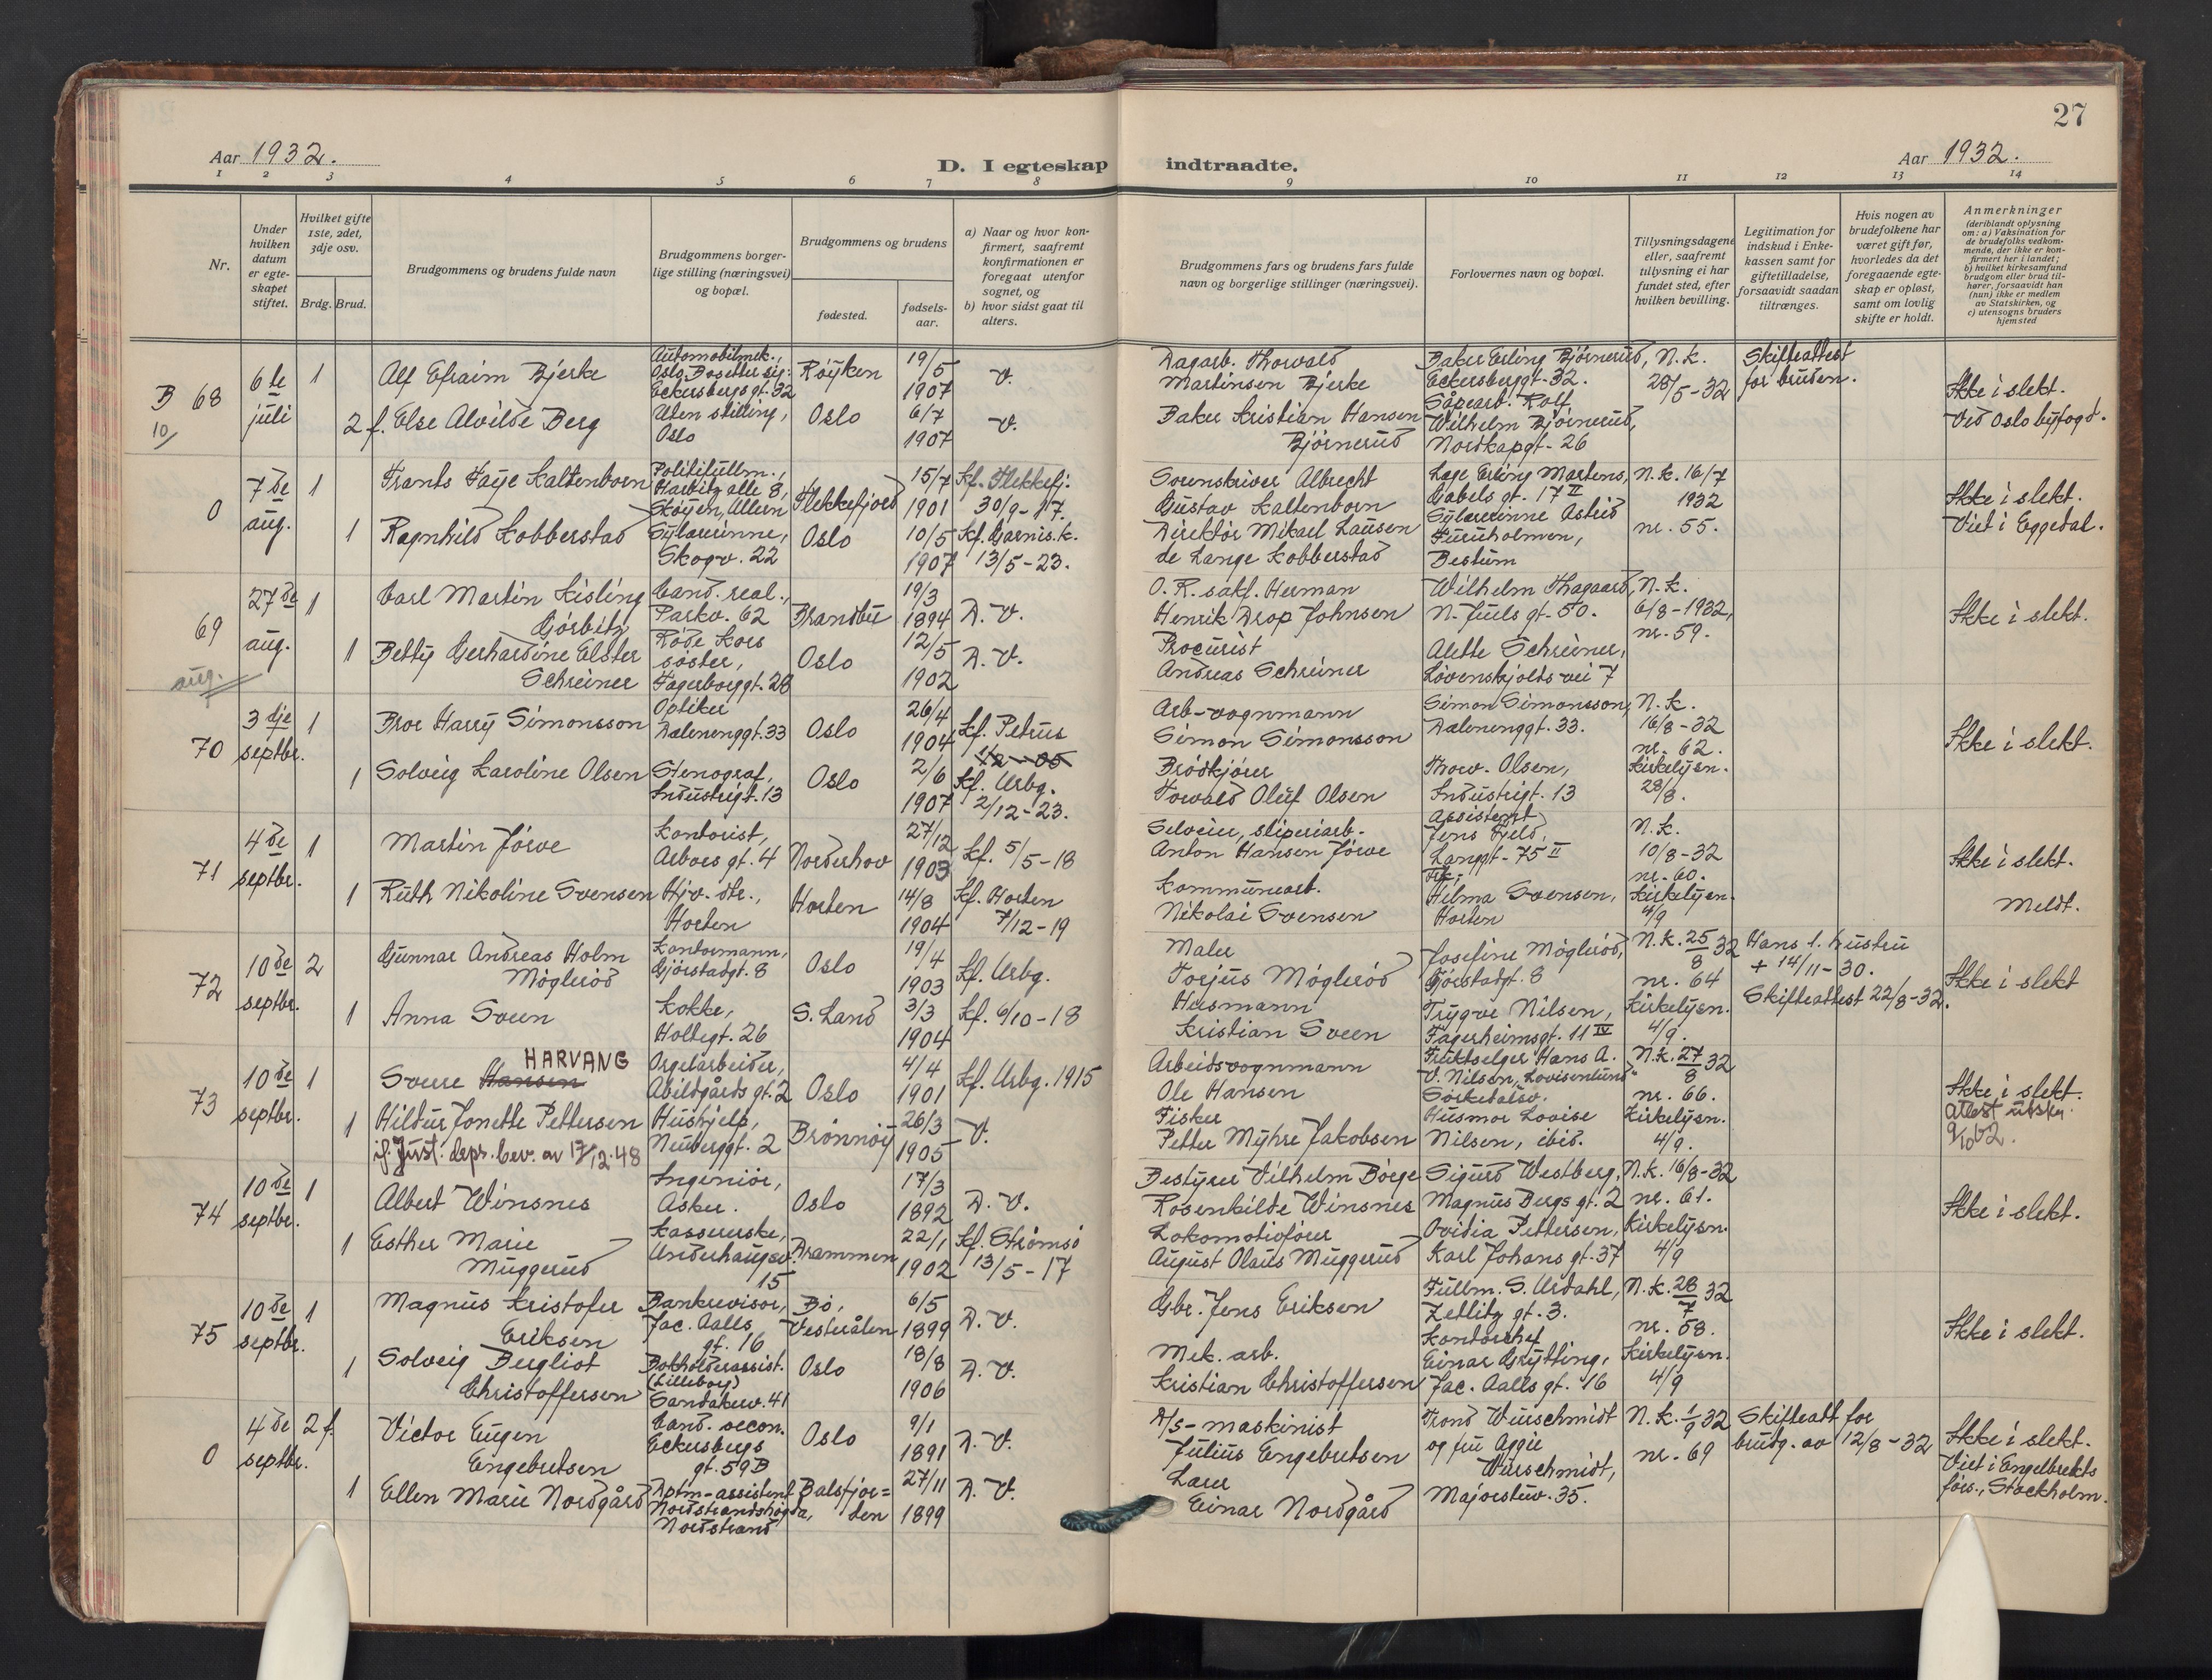 27
Aar 1932.
D. I egteskap indtraadte.
Aar 1932.
1 2 3 4 5 6 7 8 9 10 11 12 13 14
Nr.
Under hvilken datum er egteskapet stiftet.
Hvilket gifte 1ste, 2det, 3dje osv.
Brdg. Brud.
Brudgommens og brudens fulde navn
Brudgommens borgerlige stilling (næringsvei) og bopæl.
Brudgommens og brudens
fødested.
fødselsaar.
a) Naar og hvor konfirmert, saafremt konfirmationen er foregaat utenfor sognet, og
b) hvor sidst gaat til alters.
Brudgommens fars og brudens fars fulde navn og borgerlige stillinger (næringsvei).
Forlovernes navn og bopæl.
Tillysningsdagene eller, saafremt tillysning ei har fundet sted, efter hvilken bevilling.
Legitimation for indskud i Enkekassen samt for giftetilladelse, forsaavidt saadan tiltrænges.
Hvis nogen av brudefolkene har været gift før, hvorledes da det foregaaende egteskap er opløst, samt om lovlig skifte er holdt.
Anmerkninger
(deriblandt oplysning om: a) Vaksination for de brudefolks vedkommende, der ikke er konfirmert her i landet;
b) hvilket kirkesamfund brudgom eller brud tilhører, forsaavidt han (hun) ikke er medlem av Statskirken, og
c) utensogns bruders hjemsted
B 68
10/
6te juli
1
Alf Efraim Bjerke
Automobilmek.,
Eckersbergs gt. 32
Røyken
19/5 1907
V.
Dagarb. Thorvald
Martinsen Bjerke
Baker Erling Bjørnerud,
Eckersberggt. 32.
N.k.
28/5-32
Skifteattest
for bruden.
Ikke i slekt.
Ved Oslo byfogd.
2 f. Else Alvilde Berg
Uten stilling,
Oslo
Oslo
6/7 1907
V.
Baker Kristian Hansen
Bjørnerud
Såpearb. Rolf
Wilhelm Bjørnerud,
Nordkapgt. 26
0
7de aug.
1
Frants Faye Kaltenborn
Politifullm.,
Harbitz alle 8,
Skøyen, Ullern
Flekkefjord
15/7 1901
Kf. Flekkefj.
30/9-17.
Sorenskriver Albrecht
Gustav Kaltenborn
Lege Erling Martens,
Gabels gt. 17 II
N.k. 16/7
1932
nr. 55.
Ikke i slekt.
Viet i Eggedal.
1 Ragnhild Kobberstad
Sylærerinne,
Skogv. 22
Oslo
10/5 1907
Kf. Garnis.k.
13/5-23.
Direktør Mikael Lausen
de Lange Kobberstad
Sylærerinne Astrid
Furuholmen,
Bestum
69
27de aug.
1
Carl Martin Kisling
Gørbitz
Cand. real.,
Parkv. 62
Brandbu
19/3 1894
D.V.
O.R. sakf. Herman
Henrik Drop Johnsen
Wilhelm Thagaard,
N. Juels gt. 50.
N.k.
6/8-1932,
nr. 59.
Ikke i slekt.
1 Betty Gerhardine Elster
Schreiner
Røde Kors
søster,
Fagerborggt. 28
Oslo
12/5 1902
D.V.
Procurist
Andreas Schreiner
Alette Schreiner,
Løvenskjolds vei 7
aug.
70
3dje septbr.
1
Bror Harry Simonsson
Optiker
Dælenenggt. 33
Oslo
26/4 1904
Kf. Petrus
Arb-vognmann
Simon Simonsson
Simon Simonsson,
Dælenenggt. 33.
N.k.
16/8-32
nr. 62.
Kirkelysn.
28/8.
Ikke i slekt.
1 Solveig Karoline Olsen
Stenograf,
Industrigt. 13
Oslo
2/6 1907
Kf. Urbg.
2/12-23.
Brødkjører
Torvald Oluf Olsen
Thorv. Olsen,
Industrigt. 13
71
4de septbr.
1
Martin Jørve
Kontorist,
Arboes gt. 4
Norderhov
27/12 1903
Kf. 5/5-18
Selveier, sliperiarb.
Anton Hansen Jørve
Assistent
Jens Fjeld,
Langgt. 75 II
N.k.
10/8-32
nr. 60.
Kirkelysn.
4/9
Ikke i slekt.
Meldt.
1 Ruth Nikoline Svensen
Hjv. dtr.,
Horten
Horten
14/8 1904
Kf. Horten
7/12-19
Kommunearb.
Nikolai Svensen
Frk.
Hilma Svensen,
Horten
72
10de septbr.
2
Gunnar Andreas Holm
Møglerød
Kontormann,
Gjørstadgt. 8
Oslo
19/4 1903
Kf. Urbg.
Maler
Torjus Møglerød
Josefine Møglerød,
Gjørstadgt. 8
N.k. 25/8 32
nr. 64
Kirkelysn.
4/9.
Hans 1. hustru
+ 14/11-30.
Skifteattest 22/8-32.
Ikke i slekt
1 Anna Sveen
Kokke,
Holtegt. 26
S. Land
3/3 1904
Kf. 6/10-18
Husmann
Kristian Sveen
Trygve Nilsen,
Fagerheimsgt. 11 IV
73
10de septbr.
1
HARVANG
Sverre Hansen
Orgelarbeider,
Abildgårds gt. 2
Oslo
4/4 1901
Kf. Urbg. 1915
Arbeidsvognmann
Ole Hansen
Fruktselger Hans A.
V. Nilsen, "Lovisenlund"
Sørkedalsv.
N.k. 27/8 32
nr. 66.
Kirkelysn.
4/9.
Ikke i slekt.
Attest utskr.
1 Hildur Jonette Pettersen
if. Just. deps. bev. av 17/12-48
Hushjelp,
Neuberggt. 2
Brønnøy
26/3 1905
V.
Fisker
Petter Myhre Jakobsen
Husmor Lovise
Nilsen, ibid.
74
10de septbr.
1
Albert Winsnes
Ingeniør,
Asker.
Oslo
17/3 1892
D.V.
Bestyrer Vilhelm Børge
Rosenkilde Winsnes
Sigurd Westberg,
Magnus Bergs gt. 2
N.k. 16/8-32
nr. 61.
Kirkelysn.
4/9
Ikke i slekt.
1 Esther Marie
Muggerud
Kassererske,
Underhaugsv.
15
Drammen
22/1 1902
Kf. Strømsø
13/5-17
Lokomotivfører
August Olaus Muggerud
Ovidia Pettersen,
Karl Johans gt. 37
75
10de septbr.
1
Magnus Kristofer
Eriksen
Bankrevisor,
Jac. Aalls
gt. 16
Bø,
Vesterålen
6/5 1899
D.V.
Gbr. Jens Eriksen
Fullm. S. Urdahl,
Zetlitz gt. 3.
N.k. 28/7 32
nr. 58.
Kirkelysn.
4/9
Ikke i slekt.
1 Solveig Bergliot
Christoffersen
Bokholderassist.
(Lilleborg)
Sandakerv. 41
Oslo
18/8 1906
D.V.
Mek. arb.
Kristian Christoffersen
Kontorchef
Einar Grytting,
Jac. Aalls gt. 16
0
4de septbr.
2 f.
Victor Eugen
Engebretsen
Cand. oecon.
Eckersbergs
gt. 59B
Oslo
9/1 1891
D.V.
D/S-maskinist
Julius Engebretsen
Trond Wurschmidt
og fru Aggie
Wurschmidt,
Majorstuv. 35.
N.k. 1/9 32
nr. 69
Skifteatt for
brudg. av 12/8-32
Ikke i slekt.
Viet i Engelbrekts
førs., Stockholm.
1 Ellen Marie Nordgård
Dptm-assistent
Nordstrandshøgda,
Nordstrand
Balsfjor=
den
27/11 1899
D.V.
Lærer
Einar Nordgård